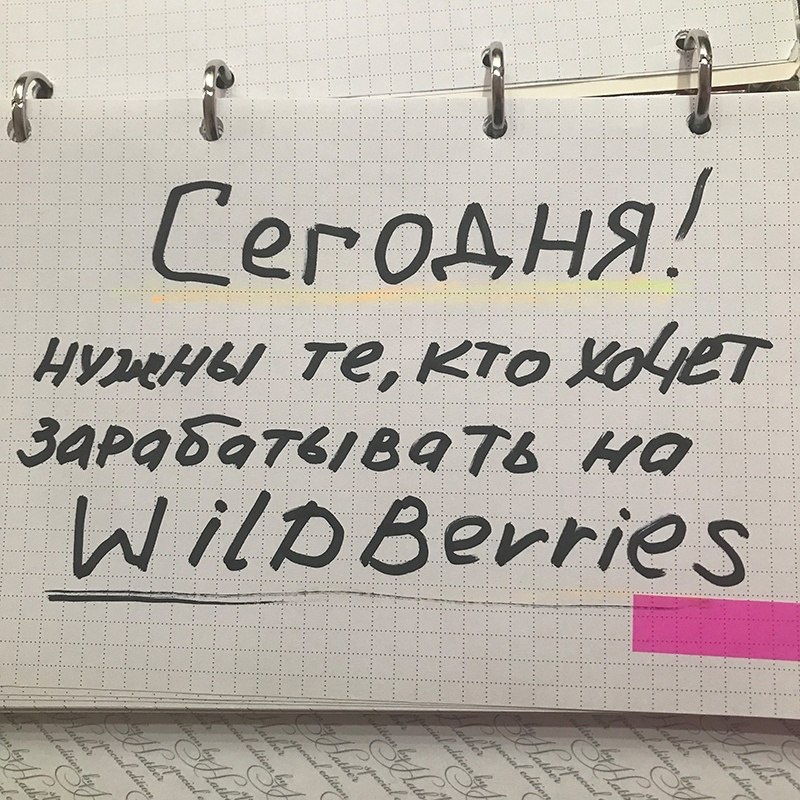 Сегодня!
нужны те, кто хочет
зарабатывать на
WilDBerries